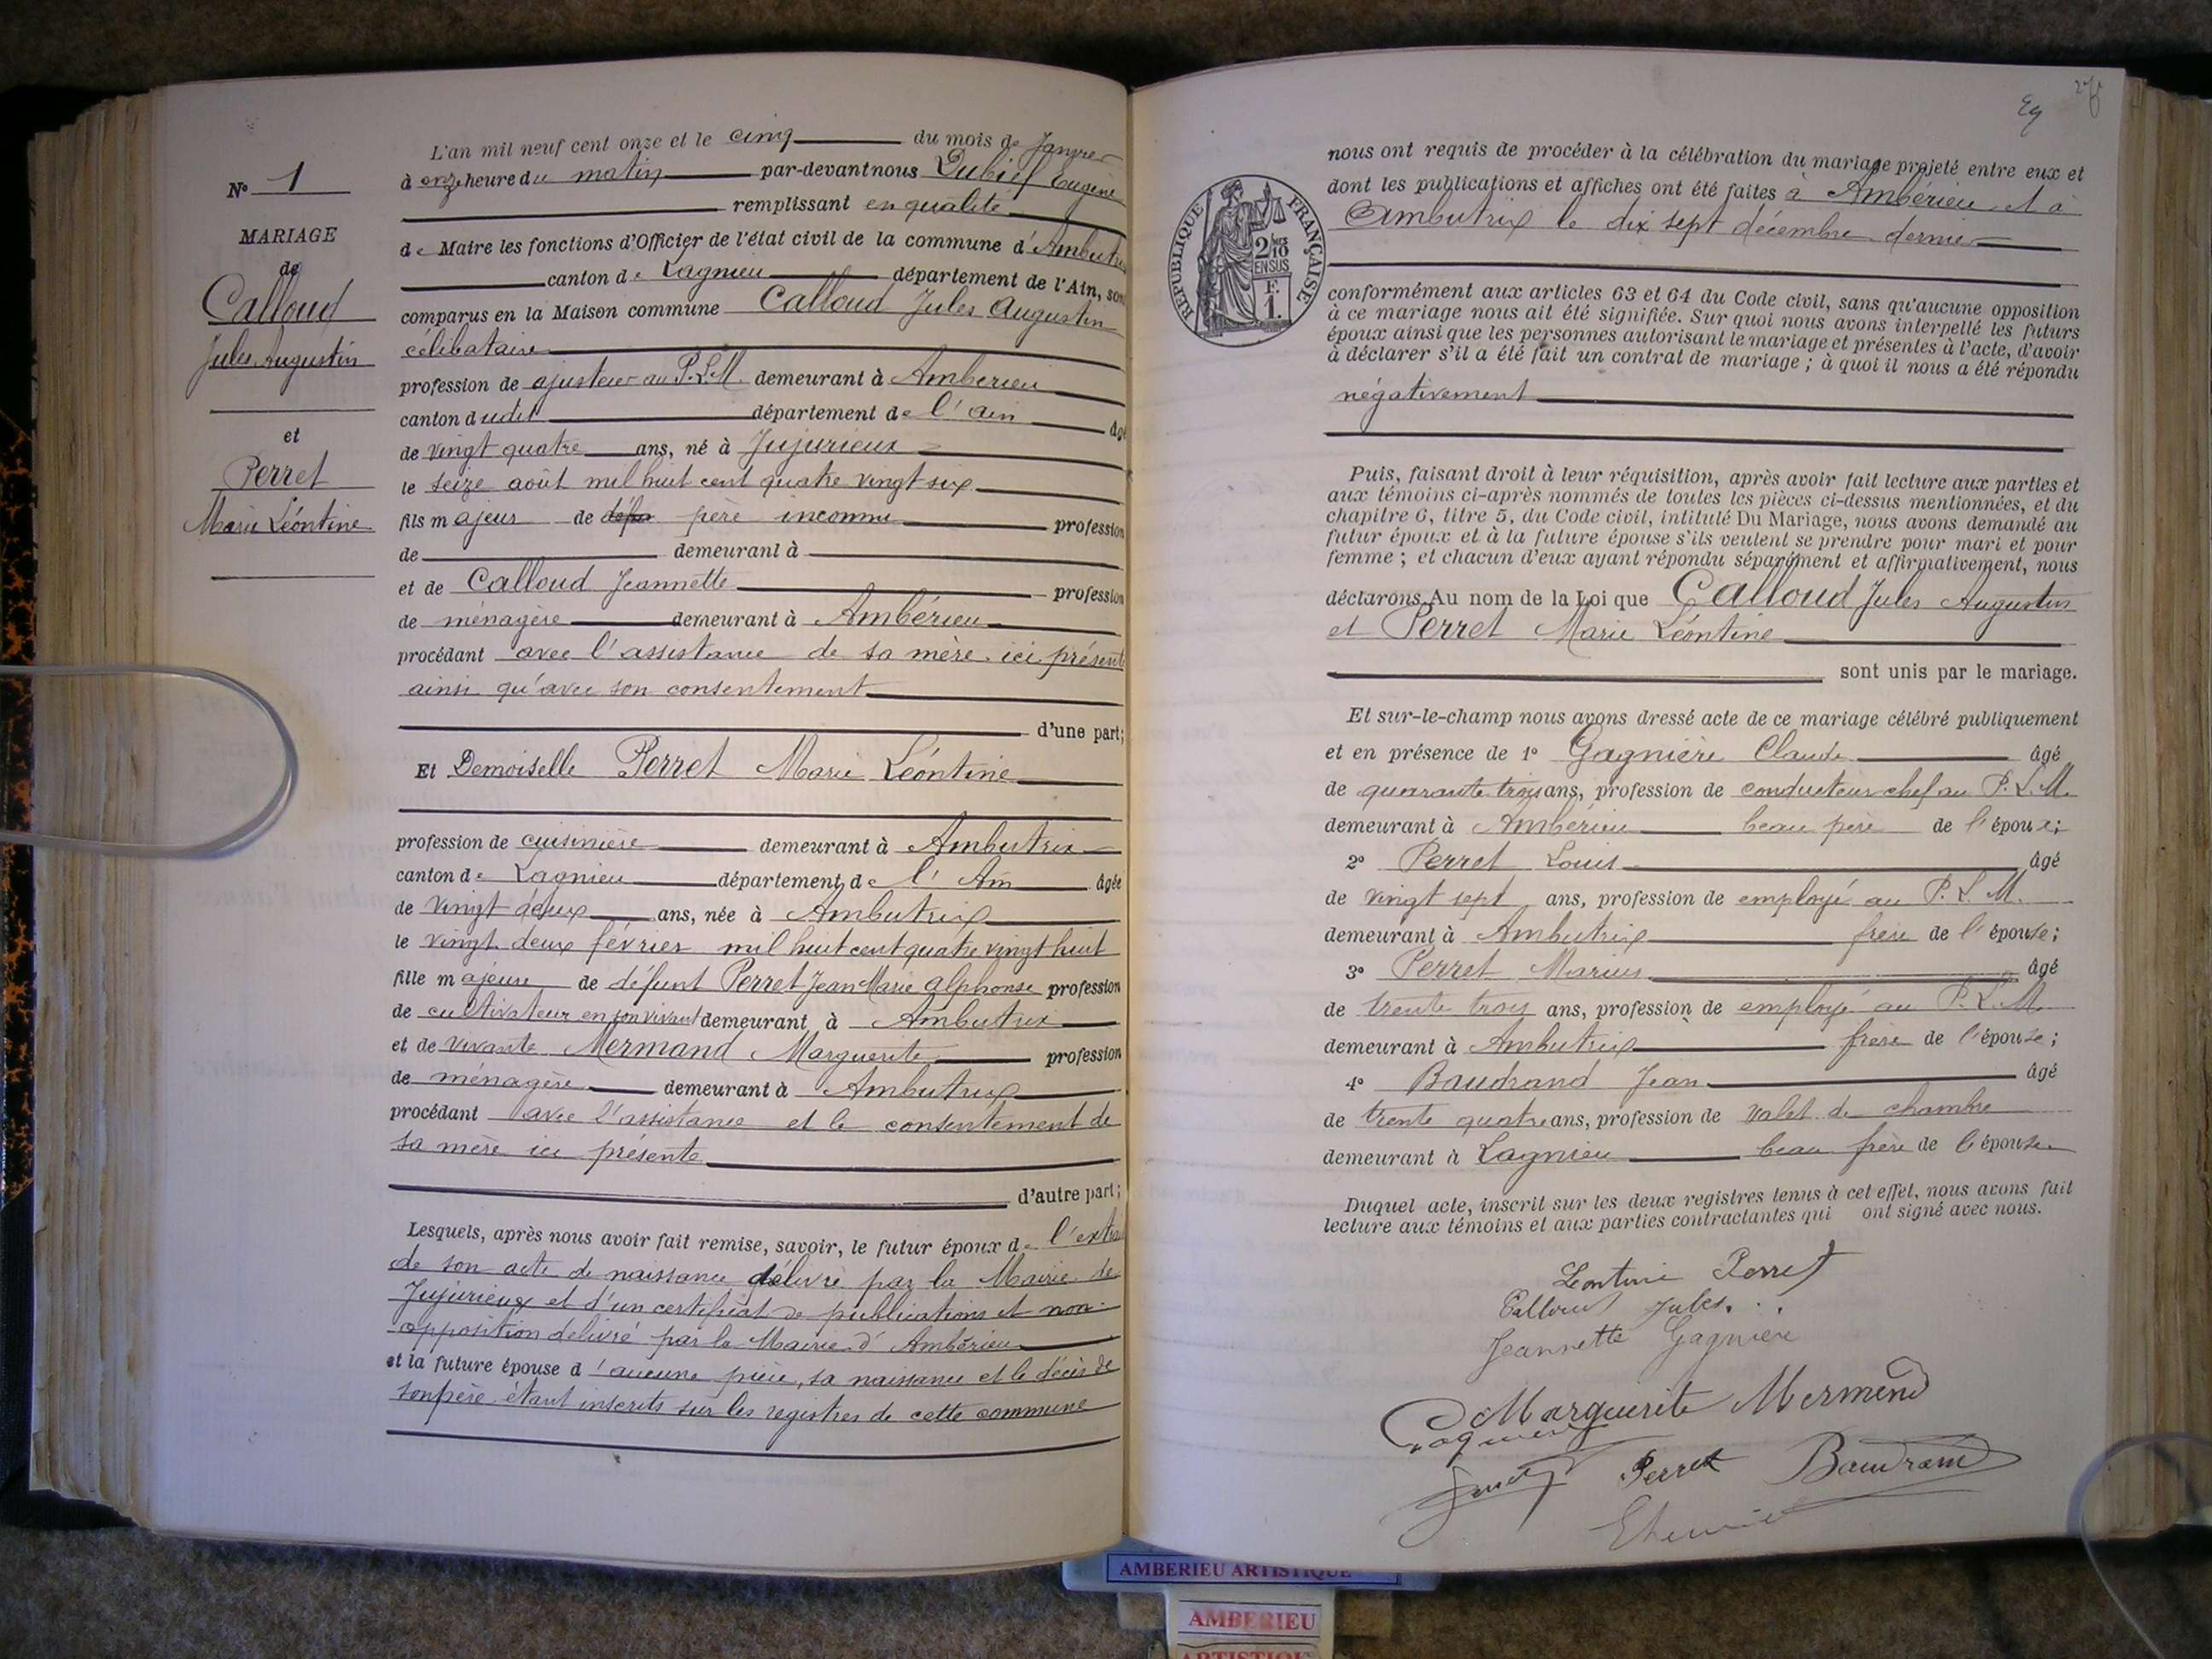 N° 1
MARIAGE
de
Calloud
Jules Augustin
et
Perret
Marie Léontine
L'an mil neuf cent onze et le cinq du mois de Janvier
à onze heure du matin par-devant nous Eugène
remplissant en qualité
de Maire les fonctions d'Officier de l'état civil de la commune d'Ambutrix
canton de Lagnieu département de l'Ain, sont
comparus en la Maison commune Calloud Jules Augustin
célibataire
profession de ajusteur au P.L.M. demeurant à Amberieu
canton dudit département de l'ain âgé
de vingt quatre ans, né à Jujurieux
le seize août mil huit cent quatre vingt six
fils majeur de père inconnu profession
de demeurant à
et de Calloud Jeannette profession
de ménagère demeurant à Ambérieu
procédant avec l'assistance de sa mère ici présente
ainsi qu'avec son consentement
d'une part;
Et Demoiselle Perret Marie Léontine
profession de cuisinière demeurant à Ambutrix
canton de Lagnieu département de l'Ain âgée
de vingt deux ans, née à Ambutrix
le vingt deux février mil huit cent quatre vingt huit
fille majeure de défunt Perret Jean Marie Alphonse profession
de cultivateur en son vivant demeurant à Ambutrix
et de vivante Mermand Marguerite profession
de ménagère demeurant à Ambutrix
procédant avec l'assistance et le consentement de
sa mère ici présente
d'autre part;
Lesquels, après nous avoir fait remise, savoir, le futur époux de l'extrait
de son acte de naissance délivré par la Mairie de
Jujurieux et d'un certificat de publications et non
opposition délivré par la Mairie d'Ambérieu
et la future épouse d'aucune pièce, sa naissance et le décès de
son père étant inscrits sur les registres de cette commune
RÉPUBLIQUE FRANÇAISE
2/10
EN SUS
F.
1.
nous ont requis de procéder à la célébration du mariage projeté entre eux et
dont les publications et affiches ont été faites à Ambérieu et à
Ambutrix le dix sept décembre dernier
conformément aux articles 63 et 64 du Code civil, sans qu'aucune opposition
à ce mariage nous ait été signifiée. Sur quoi nous avons interpellé les futurs
époux ainsi que les personnes autorisant le mariage et présentes à l'acte, d'avoir
à déclarer s'il a été fait un contrat de mariage ; à quoi il nous a été répondu
négativement
Puis, faisant droit à leur réquisition, après avoir fait lecture aux parties et
aux témoins ci-après nommés de toutes les pièces ci-dessus mentionnées, et du
chapitre 6, titre 5, du Code civil, intitulé Du Mariage, nous avons demandé au
futur époux et à la future épouse s'ils veulent se prendre pour mari et pour
femme ; et chacun d'eux ayant répondu séparément et affirmativement, nous
déclarons Au nom de la Loi que Calloud Jules Augustin
et Perret Marie Léontine
sont unis par le mariage.
Et sur-le-champ nous avons dressé acte de ce mariage célébré publiquement
et en présence de 1° Gagnière Claude âgé
de quarante trois ans, profession de conducteur chef au P.L.M.
demeurant à Ambérieu beau père de l'époux;
2° Perret Louis âgé
de vingt sept ans, profession de employé au P.L.M.
demeurant à Ambutrix frère de l'épouse;
3° Perret Marius âgé
de trente trois ans, profession de employé au P.L.M.
demeurant à Ambutrix frère de l'épouse;
4° Baudrand Jean âgé
de trente quatre ans, profession de valet de chambre
demeurant à Lagnieu beau frère de l'épouse
Duquel acte, inscrit sur les deux registres tenus à cet effet, nous avons fait
lecture aux témoins et aux parties contractantes qui ont signé avec nous.
Leontine Perret
Calloud Jules
Jeannette Gagnière
Marguerite Mermend
Perret Baudrand
AMBERIEU ARTISTIQUE
AMBERIEU
ARTISTIQUE